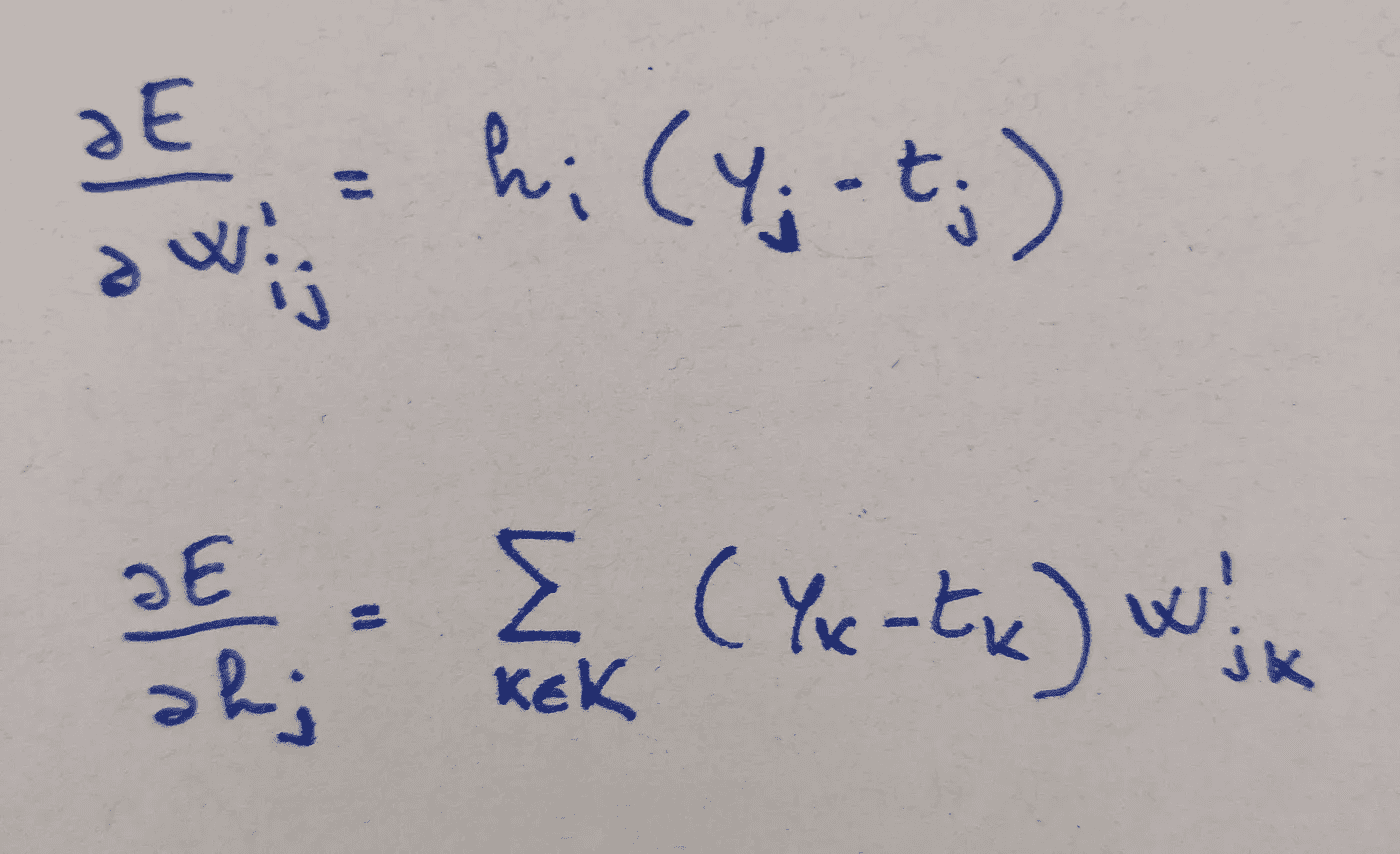 ∂E/∂w'ᵢⱼ = hᵢ (yⱼ - tⱼ)
∂E/∂hⱼ = ∑_{k∈K} (yₖ - tₖ) w'ⱼₖ